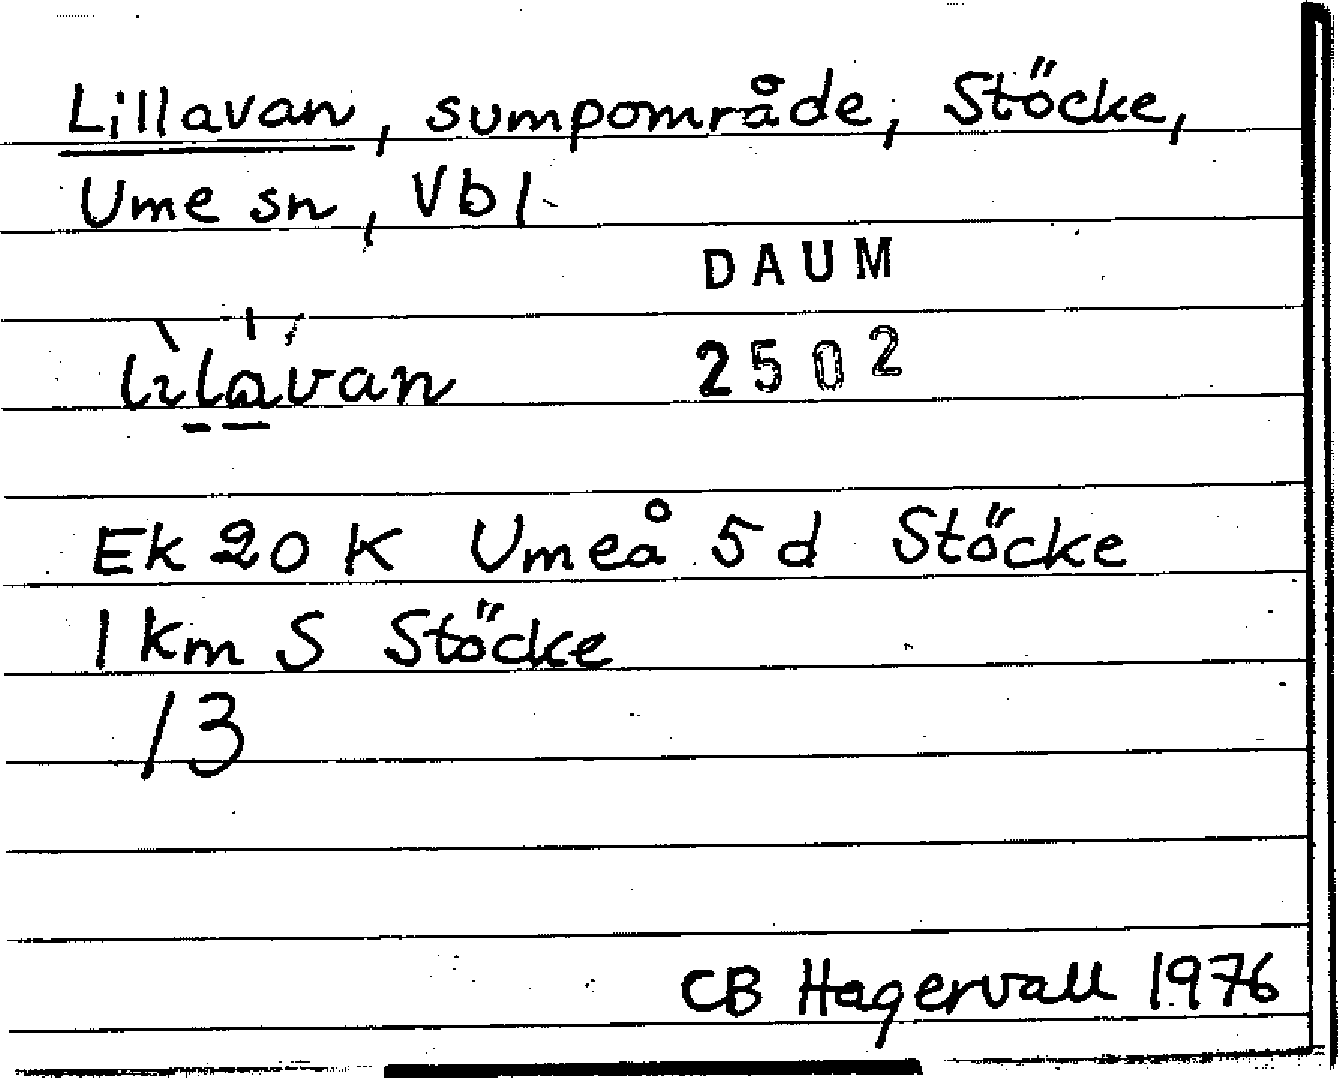 Lillavan, sumpområde, Stöcke,
Ume sn, Vbl
DAUM
2502
lılavan
Ek 20 K Umeå 5 d Stöcke
1 km S Stöcke
13
CB Hagervall 1976